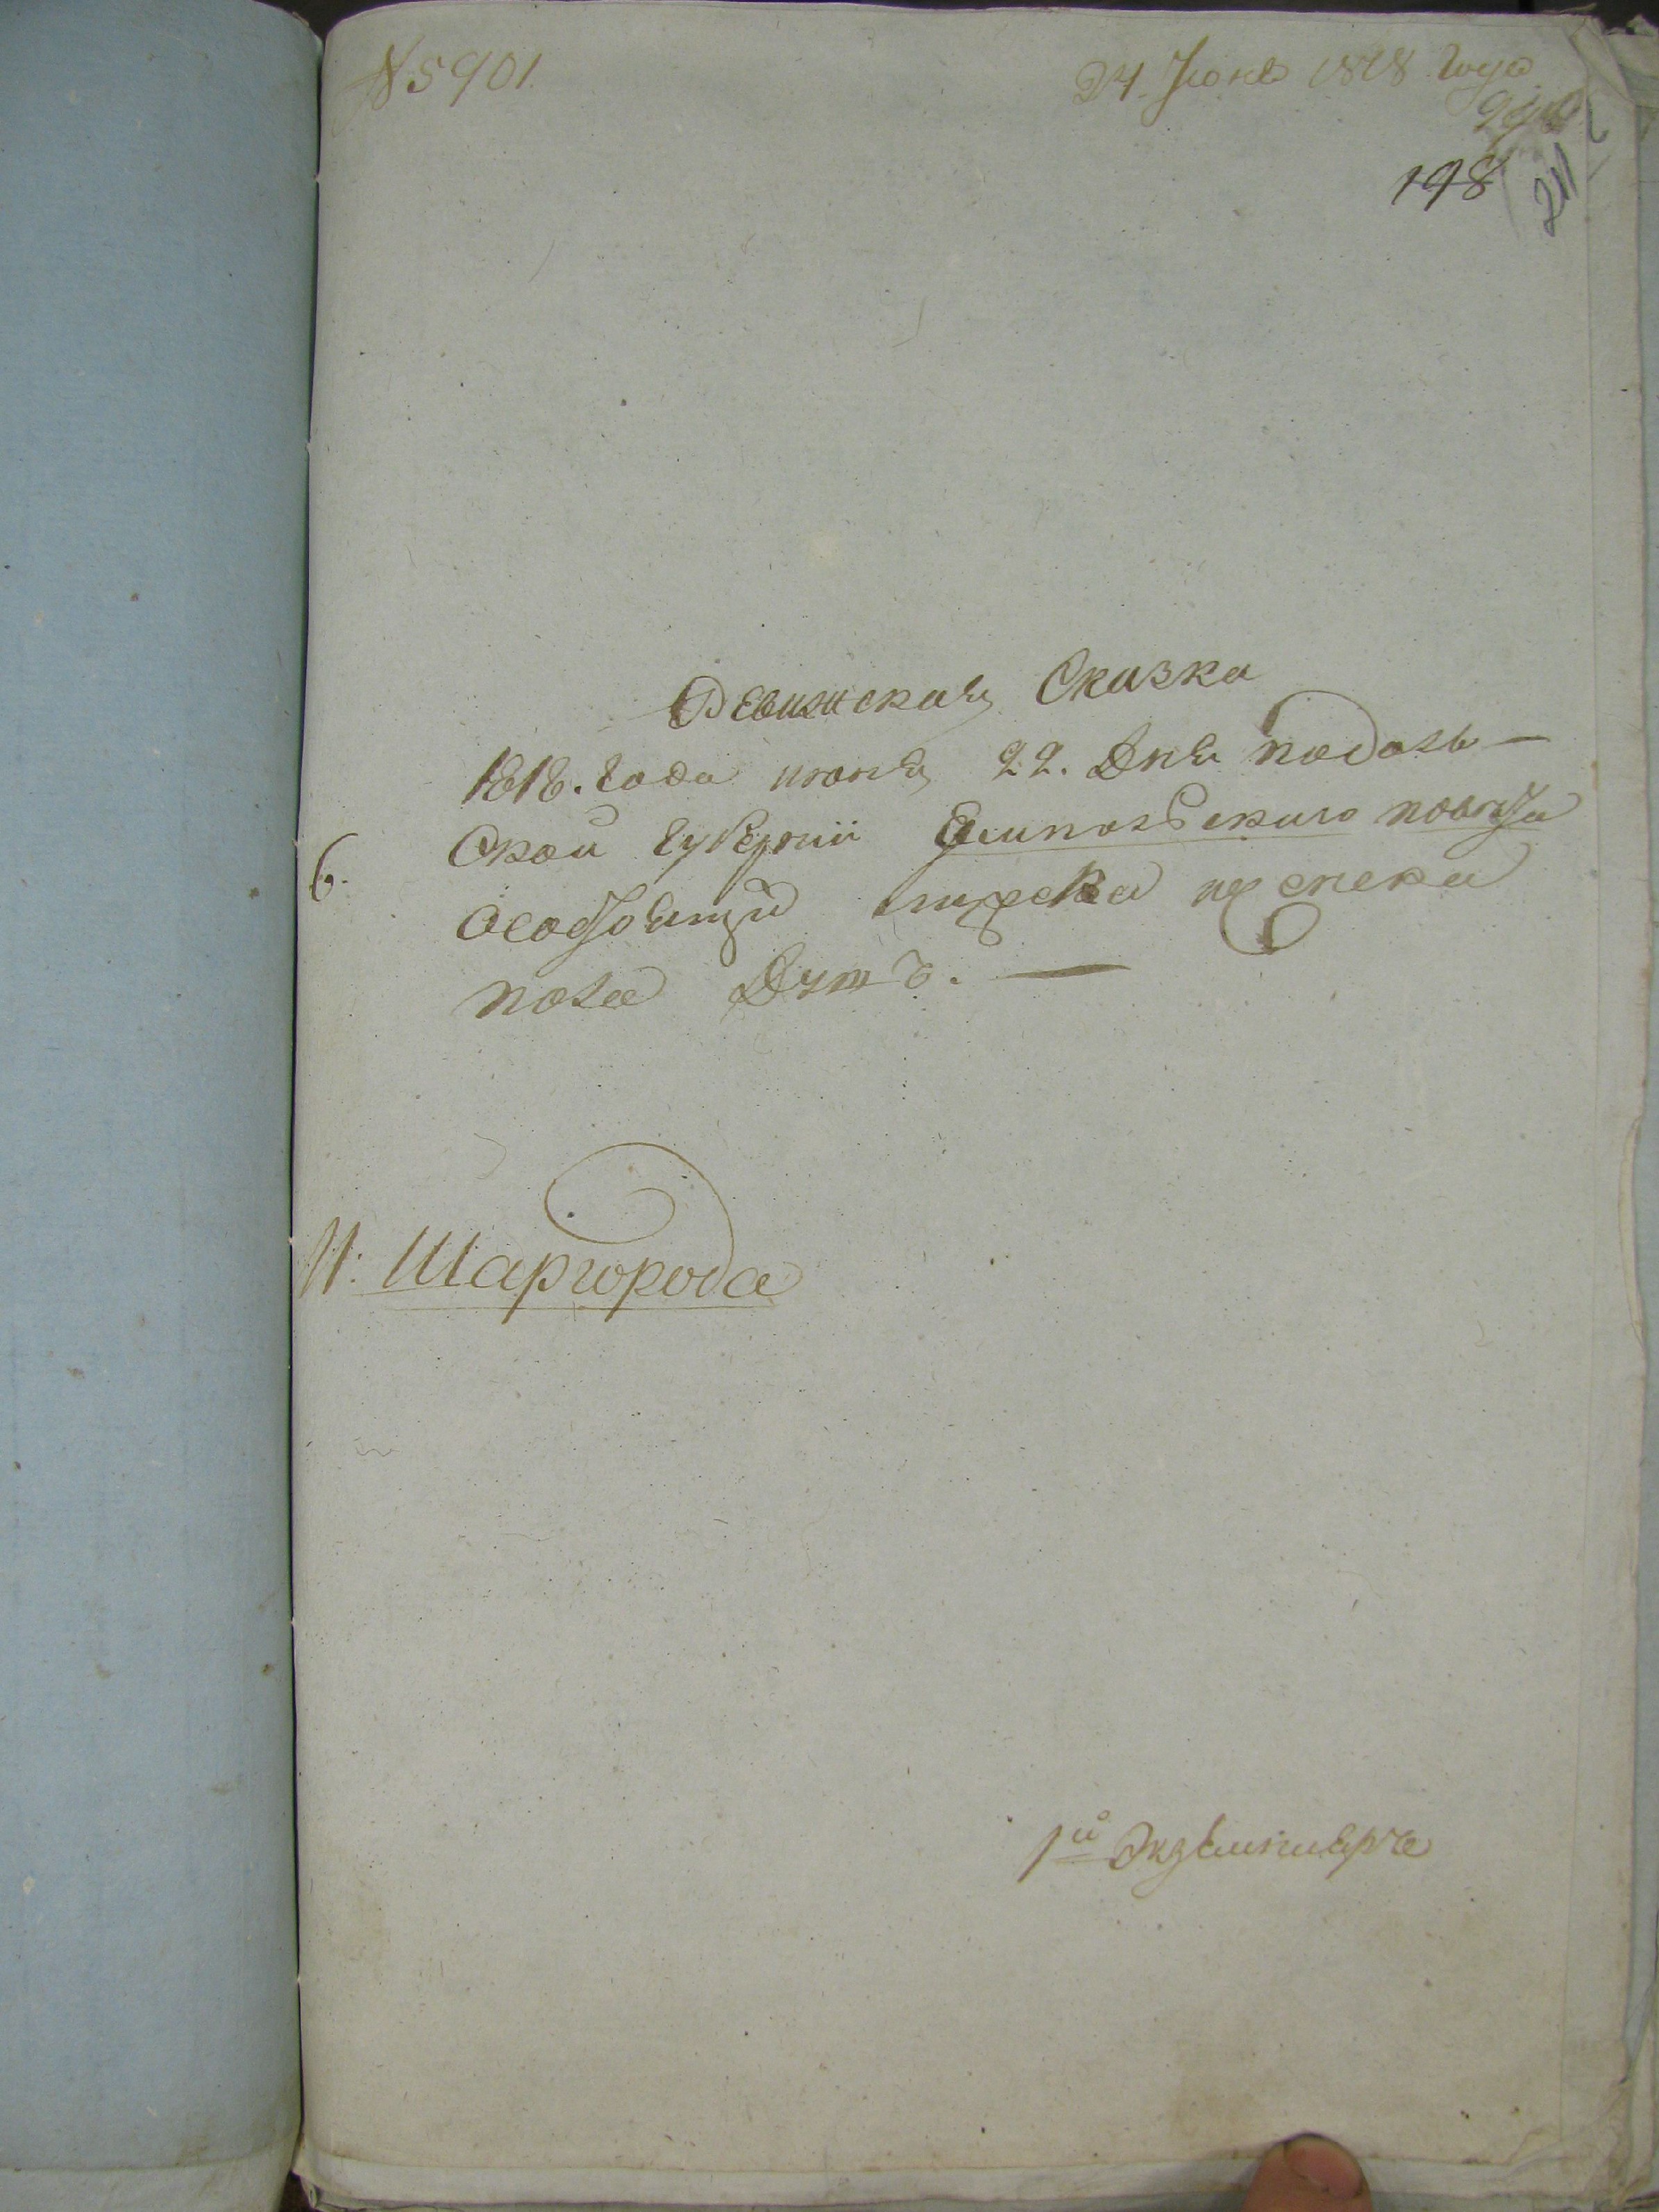 № 5901.
24. Июня 1818 года
198
211
Ревижская Сказка
1818. Года июня 22. Дня подоль-
Ской Губернии Ямпольского повета
6.
Особовящій еврейска
пола Душъ. —
М: Шаргорода
1й Экземпляръ